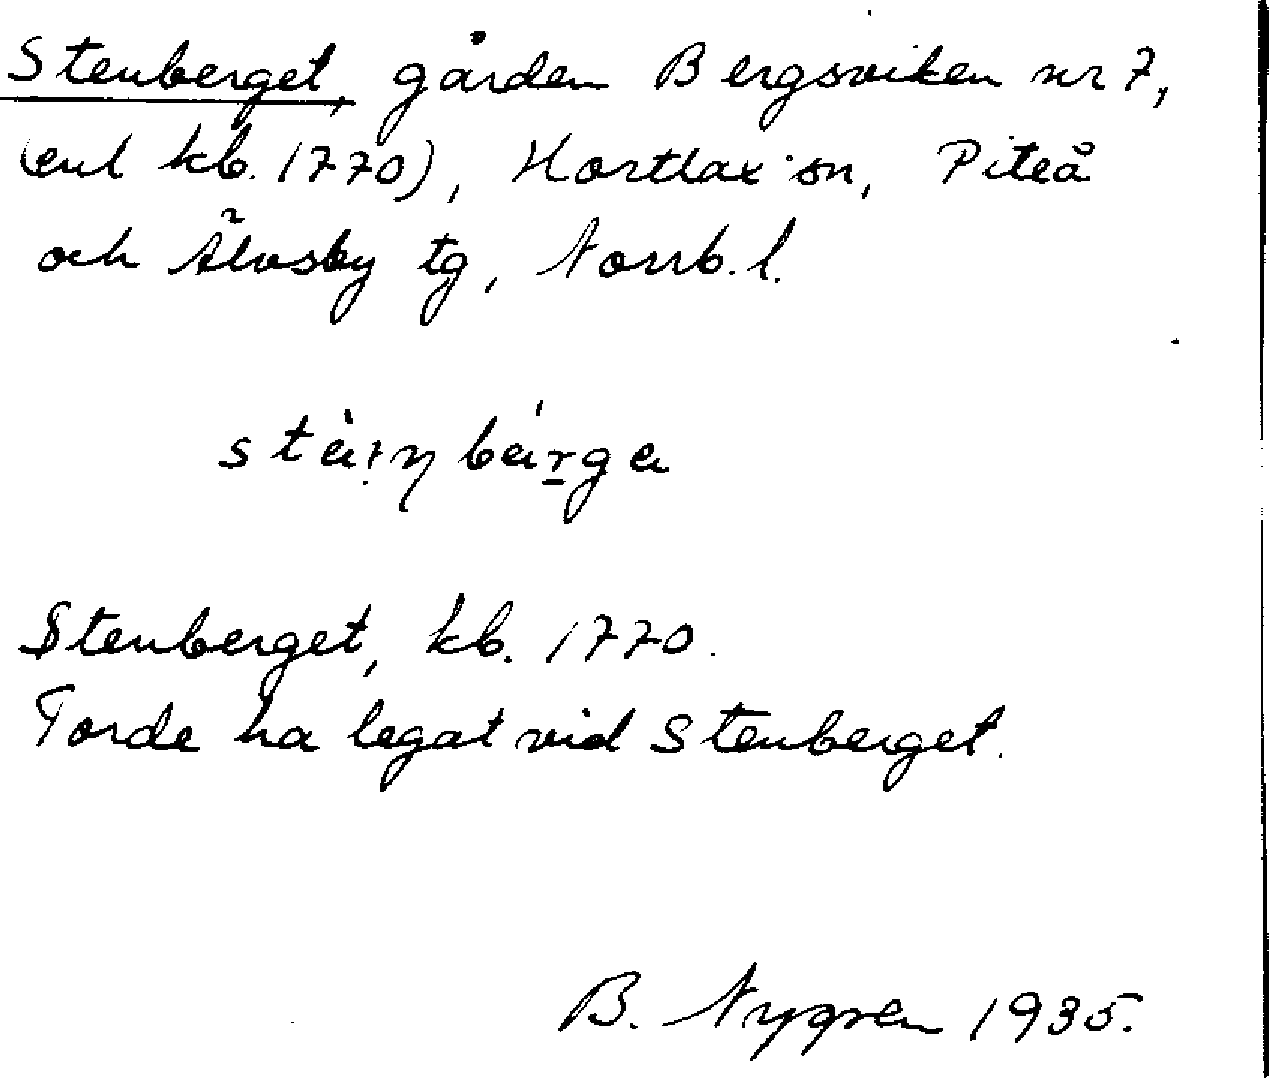 Stenberget, gården Bergsviken nr 7,
(enl kb. 1770), Hortlax sn, Piteå
och Älvsby tg, Norrb. l.
Stenberget, kb. 1770.
Torde ha legat vid Stenberget.
B. Nygren 1935.